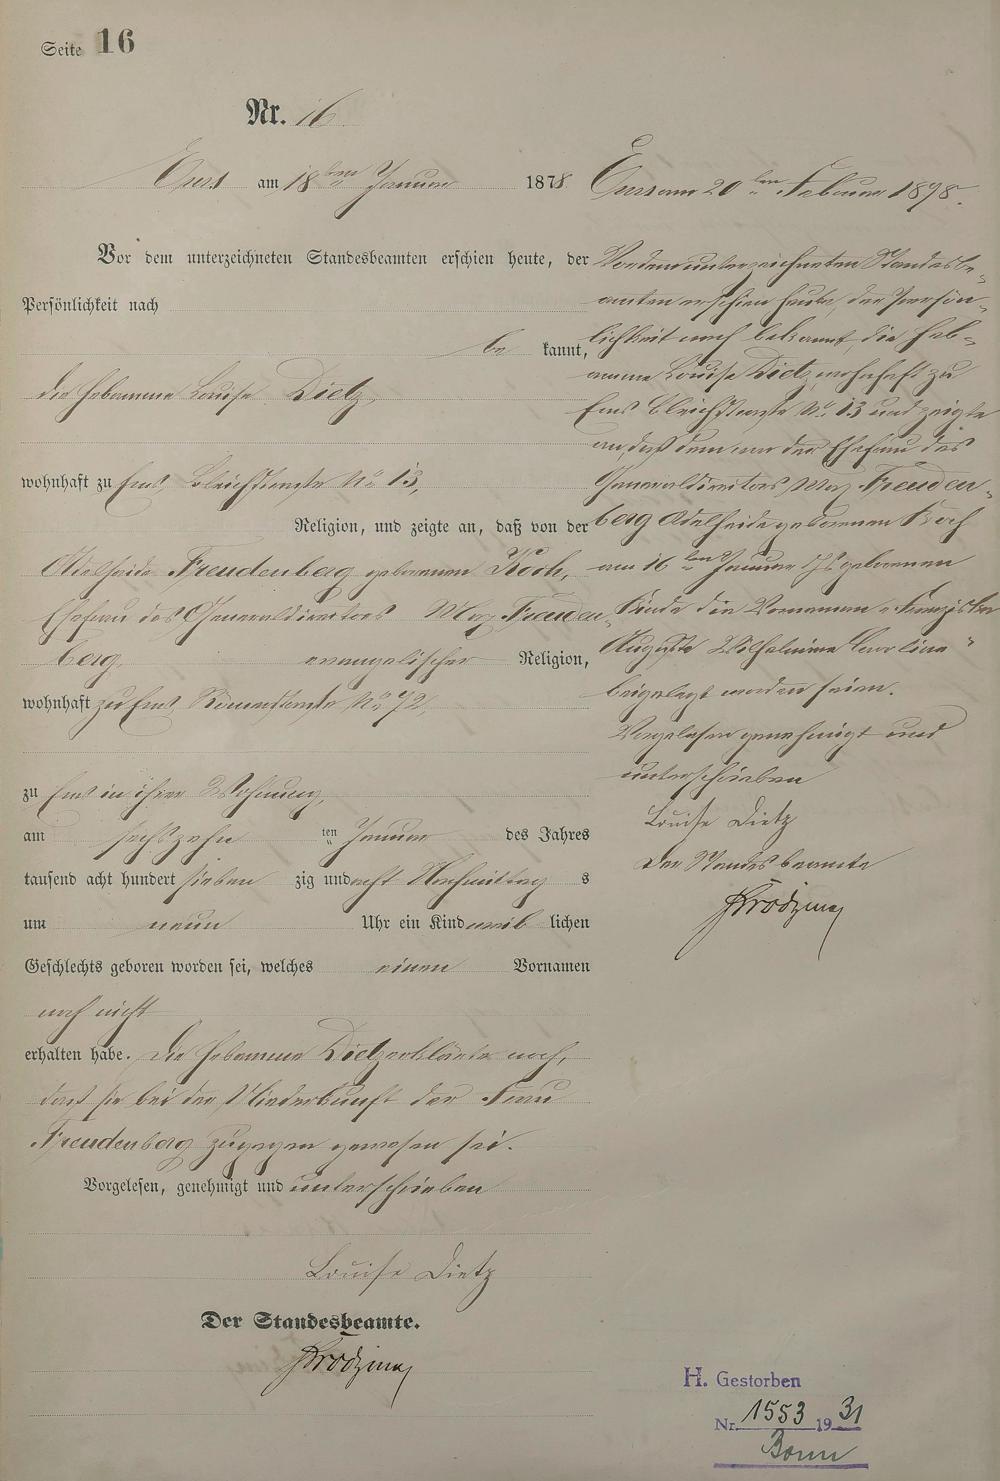 Seite 16
Nr. 16
Ems am 18ten Januar 1878
Vor dem unterzeichneten Standesbeamten erschien heute, der
Persönlichkeit nach
be kannt,
die Hebamme Louise Dietz
wohnhaft zu Ems, Bleichstraße No 13,
Religion, und zeigte an, daß von der
Adelheide Freudenberg geborenen Koch,
Ehefrau des Generaldirectors Max Freuden-
berg, evangelischer Religion,
wohnhaft zu Ems Römerstraße No 72,
zu Ems in ihrer Wohnung,
am sechszehn ten Januar des Jahres
tausend acht hundert sieben zig und acht Nachmittag s
um neun Uhr ein Kind weib lichen
Geschlechts geboren worden sei, welches einen Vornamen
noch nicht
erhalten habe. Die Hebamme Dietz erklärte noch,
daß sie bei der Niederkunft der Frau
Freudenberg zugegen gewesen sei.
Vorgelesen, genehmigt und unterschrieben
Louise Dietz
Der Standesbeamte.
Ems am 20ten Februar 1898.
Vor dem unterzeichneten Standesbe-
amten erschien heute, der Persön-
lichkeit nach bekannt, die Heb-
amme Louise Dietz, wohnhaft zu
Ems Bleichstraße No 13 und zeigte
an, daß dem von der Ehefrau des
Generaldirectors Max Freuden-
berg Adelheide geborenen Koch
am 16ten Januar geborenen
Kinde die Vornamen "Franziska
Auguste Wilhelmine Caroline"
beigelegt worden seien.
Vorgelesen genehmigt und
unterschrieben
Louise Dietz
Der Standesbeamte
H. Gestorben
Nr. 1553 1931
Bonn